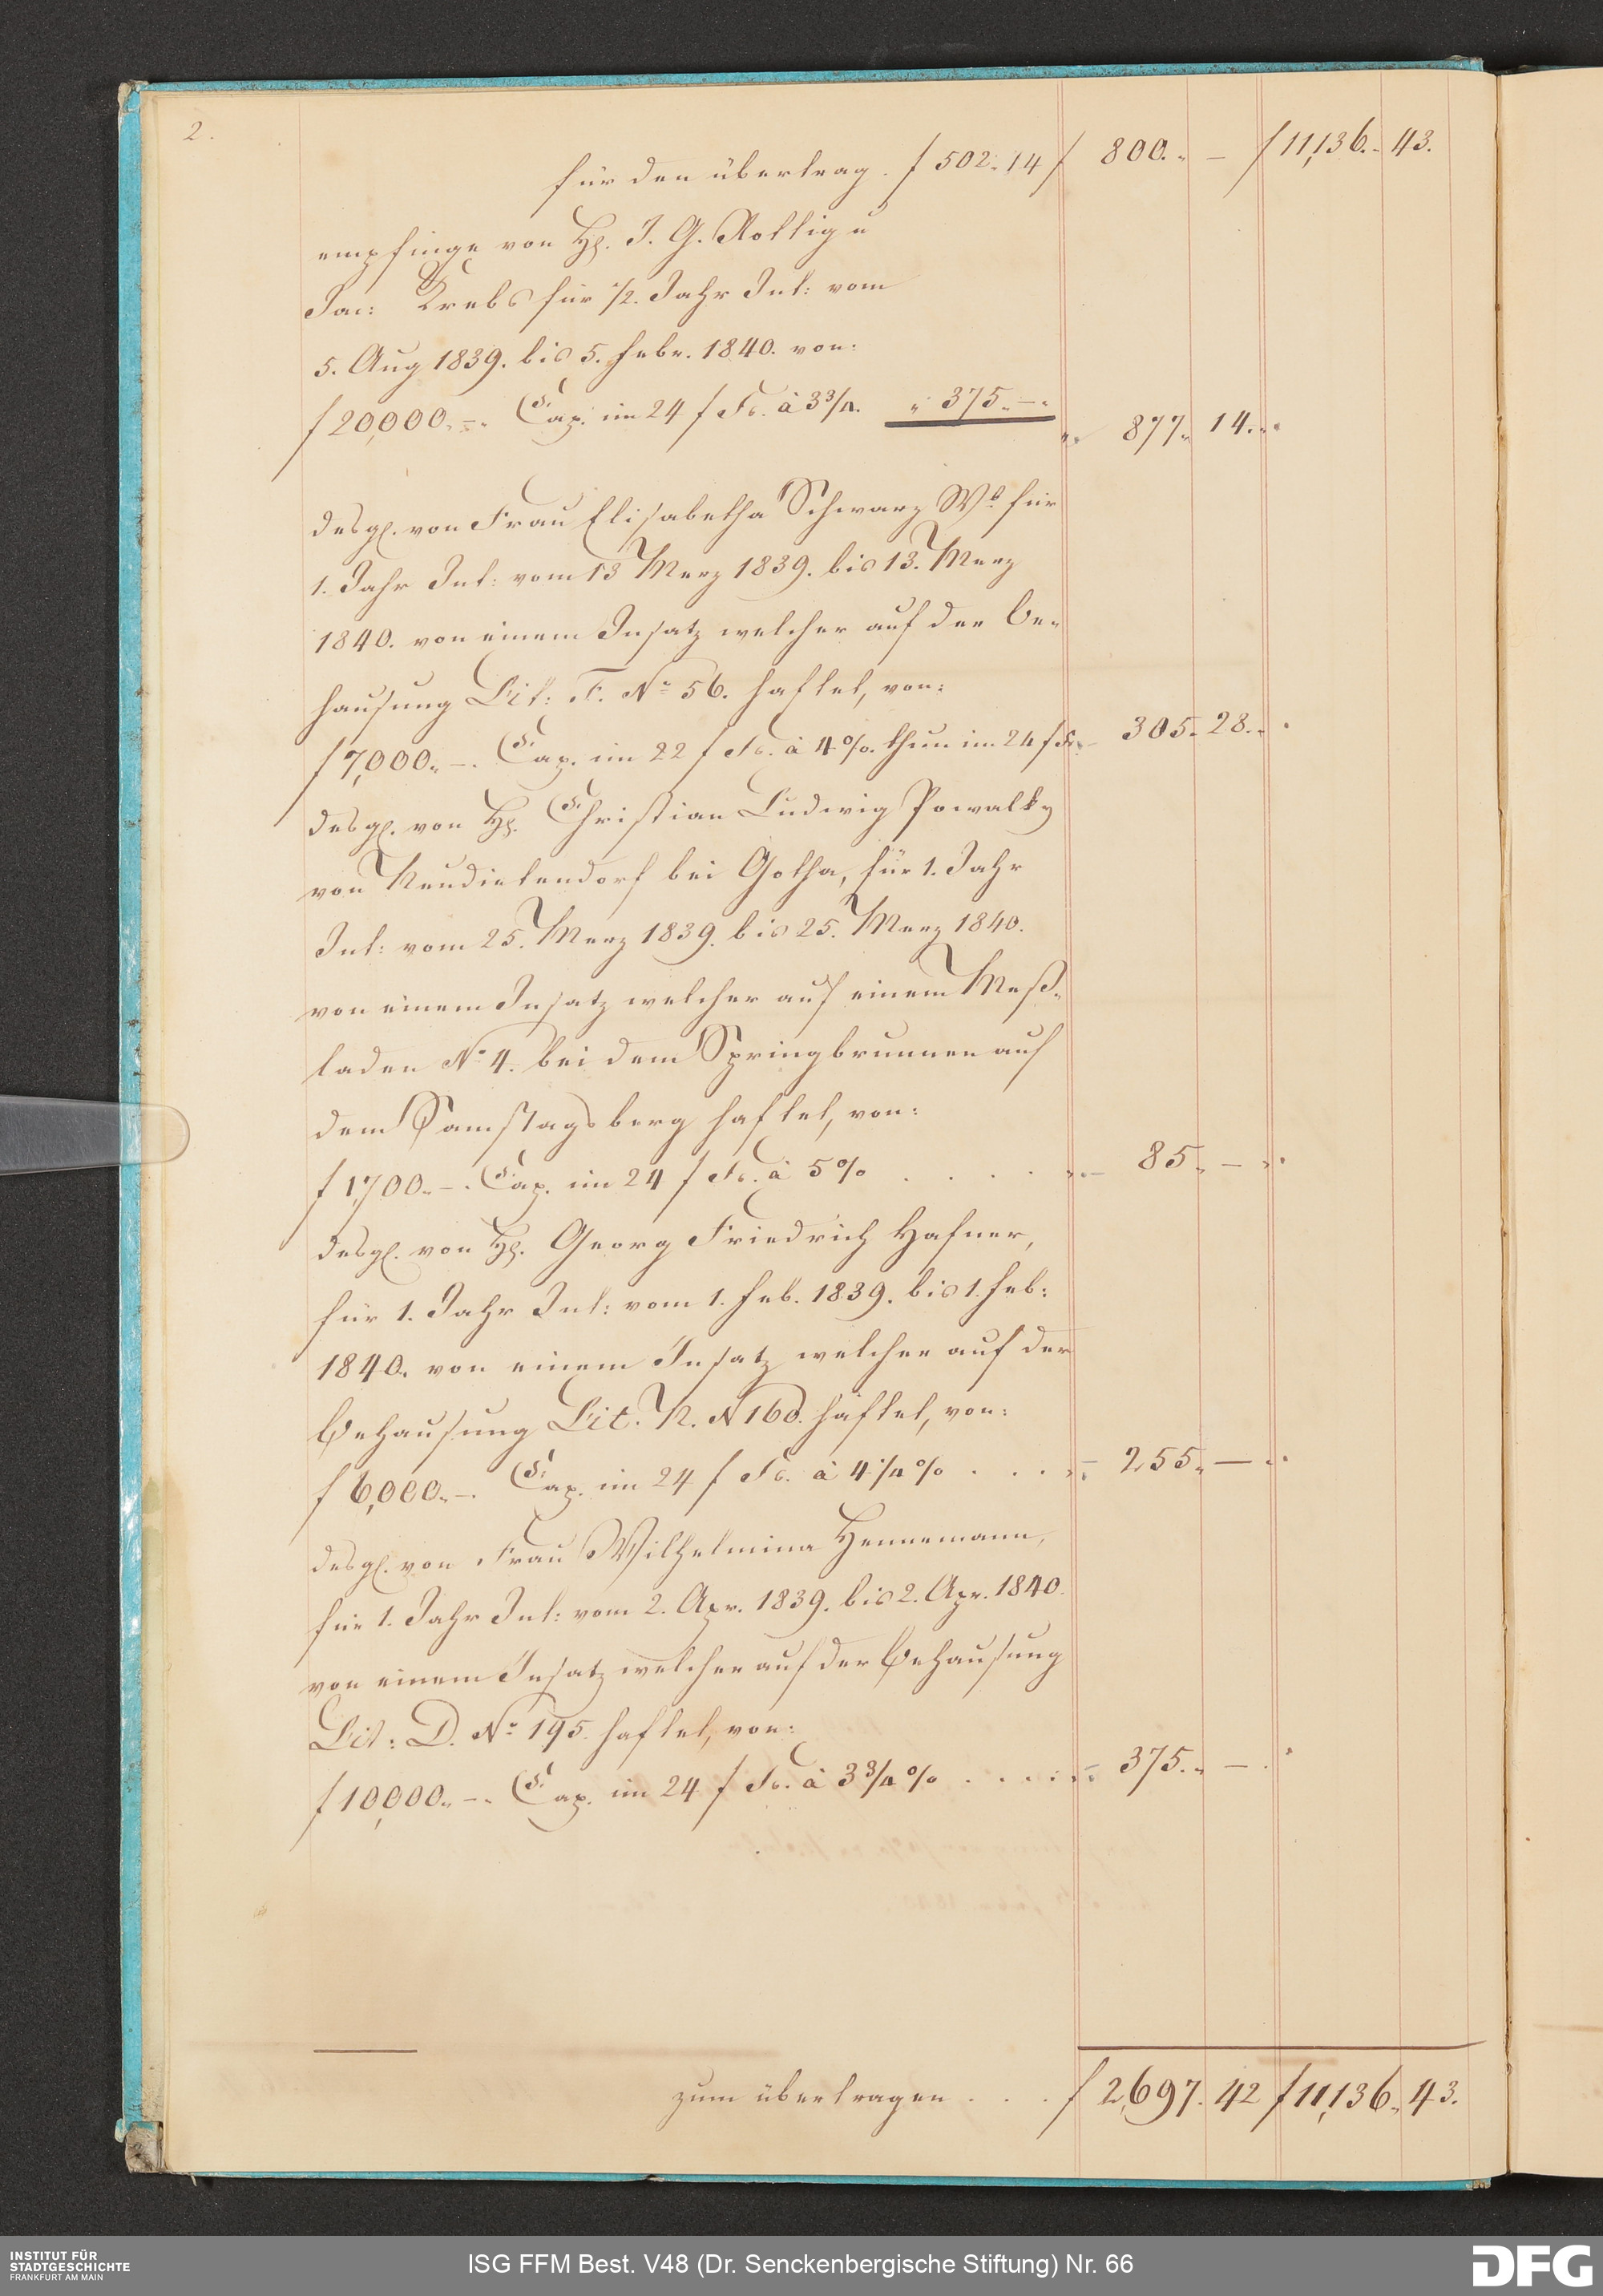 2.
für den übertrag . f 502. 14 f 800. „ — f 11,136. „ 43.
empfinge von H. J. G. Rollig u
Jac: Krebs für 1/2. Jahr Int: vom
5. Aug 1839. bis 5. Febr. 1840. von:
f 20,000. „ —. Cap. im 24 f Fs. à 3 3/4. „ 375. „ — „ 877. „ 14. „
desgl. von Frau Elisabetha Schwarz Wb. für
1. Jahr Int: vom 13 Merz 1839. bis 13. Merz
1840. von einem Insatz welcher auf der Be-
hausung Lit: F. No 56. haftet, von:
f 7,000. „ —. Cap. im 22 f Fs. à 4 %. thun im 24 f Fs. „ 305. „ 28. „
desgl. von H. Christian Ludwig Powalky
von Neudietendorf bei Gotha, für 1. Jahr
Int: vom 25. Merz 1839. bis 25. Merz 1840.
von einem Insatz welcher auf einem Meß-
laden No 4. bei dem Springbrunnen auf
dem Samstagsberg haftet, von:
f 1,700. „ —. Cap. im 24 f Fs. à 5 % . . . . „ 85. „ — „
desgl. von H. Georg Friedrich Hafner,
für 1. Jahr Int: vom 1. Feb. 1839. bis 1. Feb:
1840. von einem Insatz welcher auf der
Behausung Lit. N. N 160. haftet, von:
f 6,000. „ —. Cap. im 24 f Fs. à 4 1/4 % . . . „ 255. „ — „
desgl. von Frau Wilhelmina Hennemann,
für 1. Jahr Int: vom 2. Apr. 1839. bis 2. Apr. 1840.
von einem Insatz welcher auf der Behausung
Lit: D. No 195. haftet, von:
f 10,000. „ —. Cap. im 24 f Fs. à 3 3/4 % . . . . „ 375. „ — .
zum übertragen . . . f 2,697. 42 f 11,136. „ 43.
INSTITUT FÜR
STADTGESCHICHTE
FRANKFURT AM MAIN
ISG FFM Best. V48 (Dr. Senckenbergische Stiftung) Nr. 66
DFG